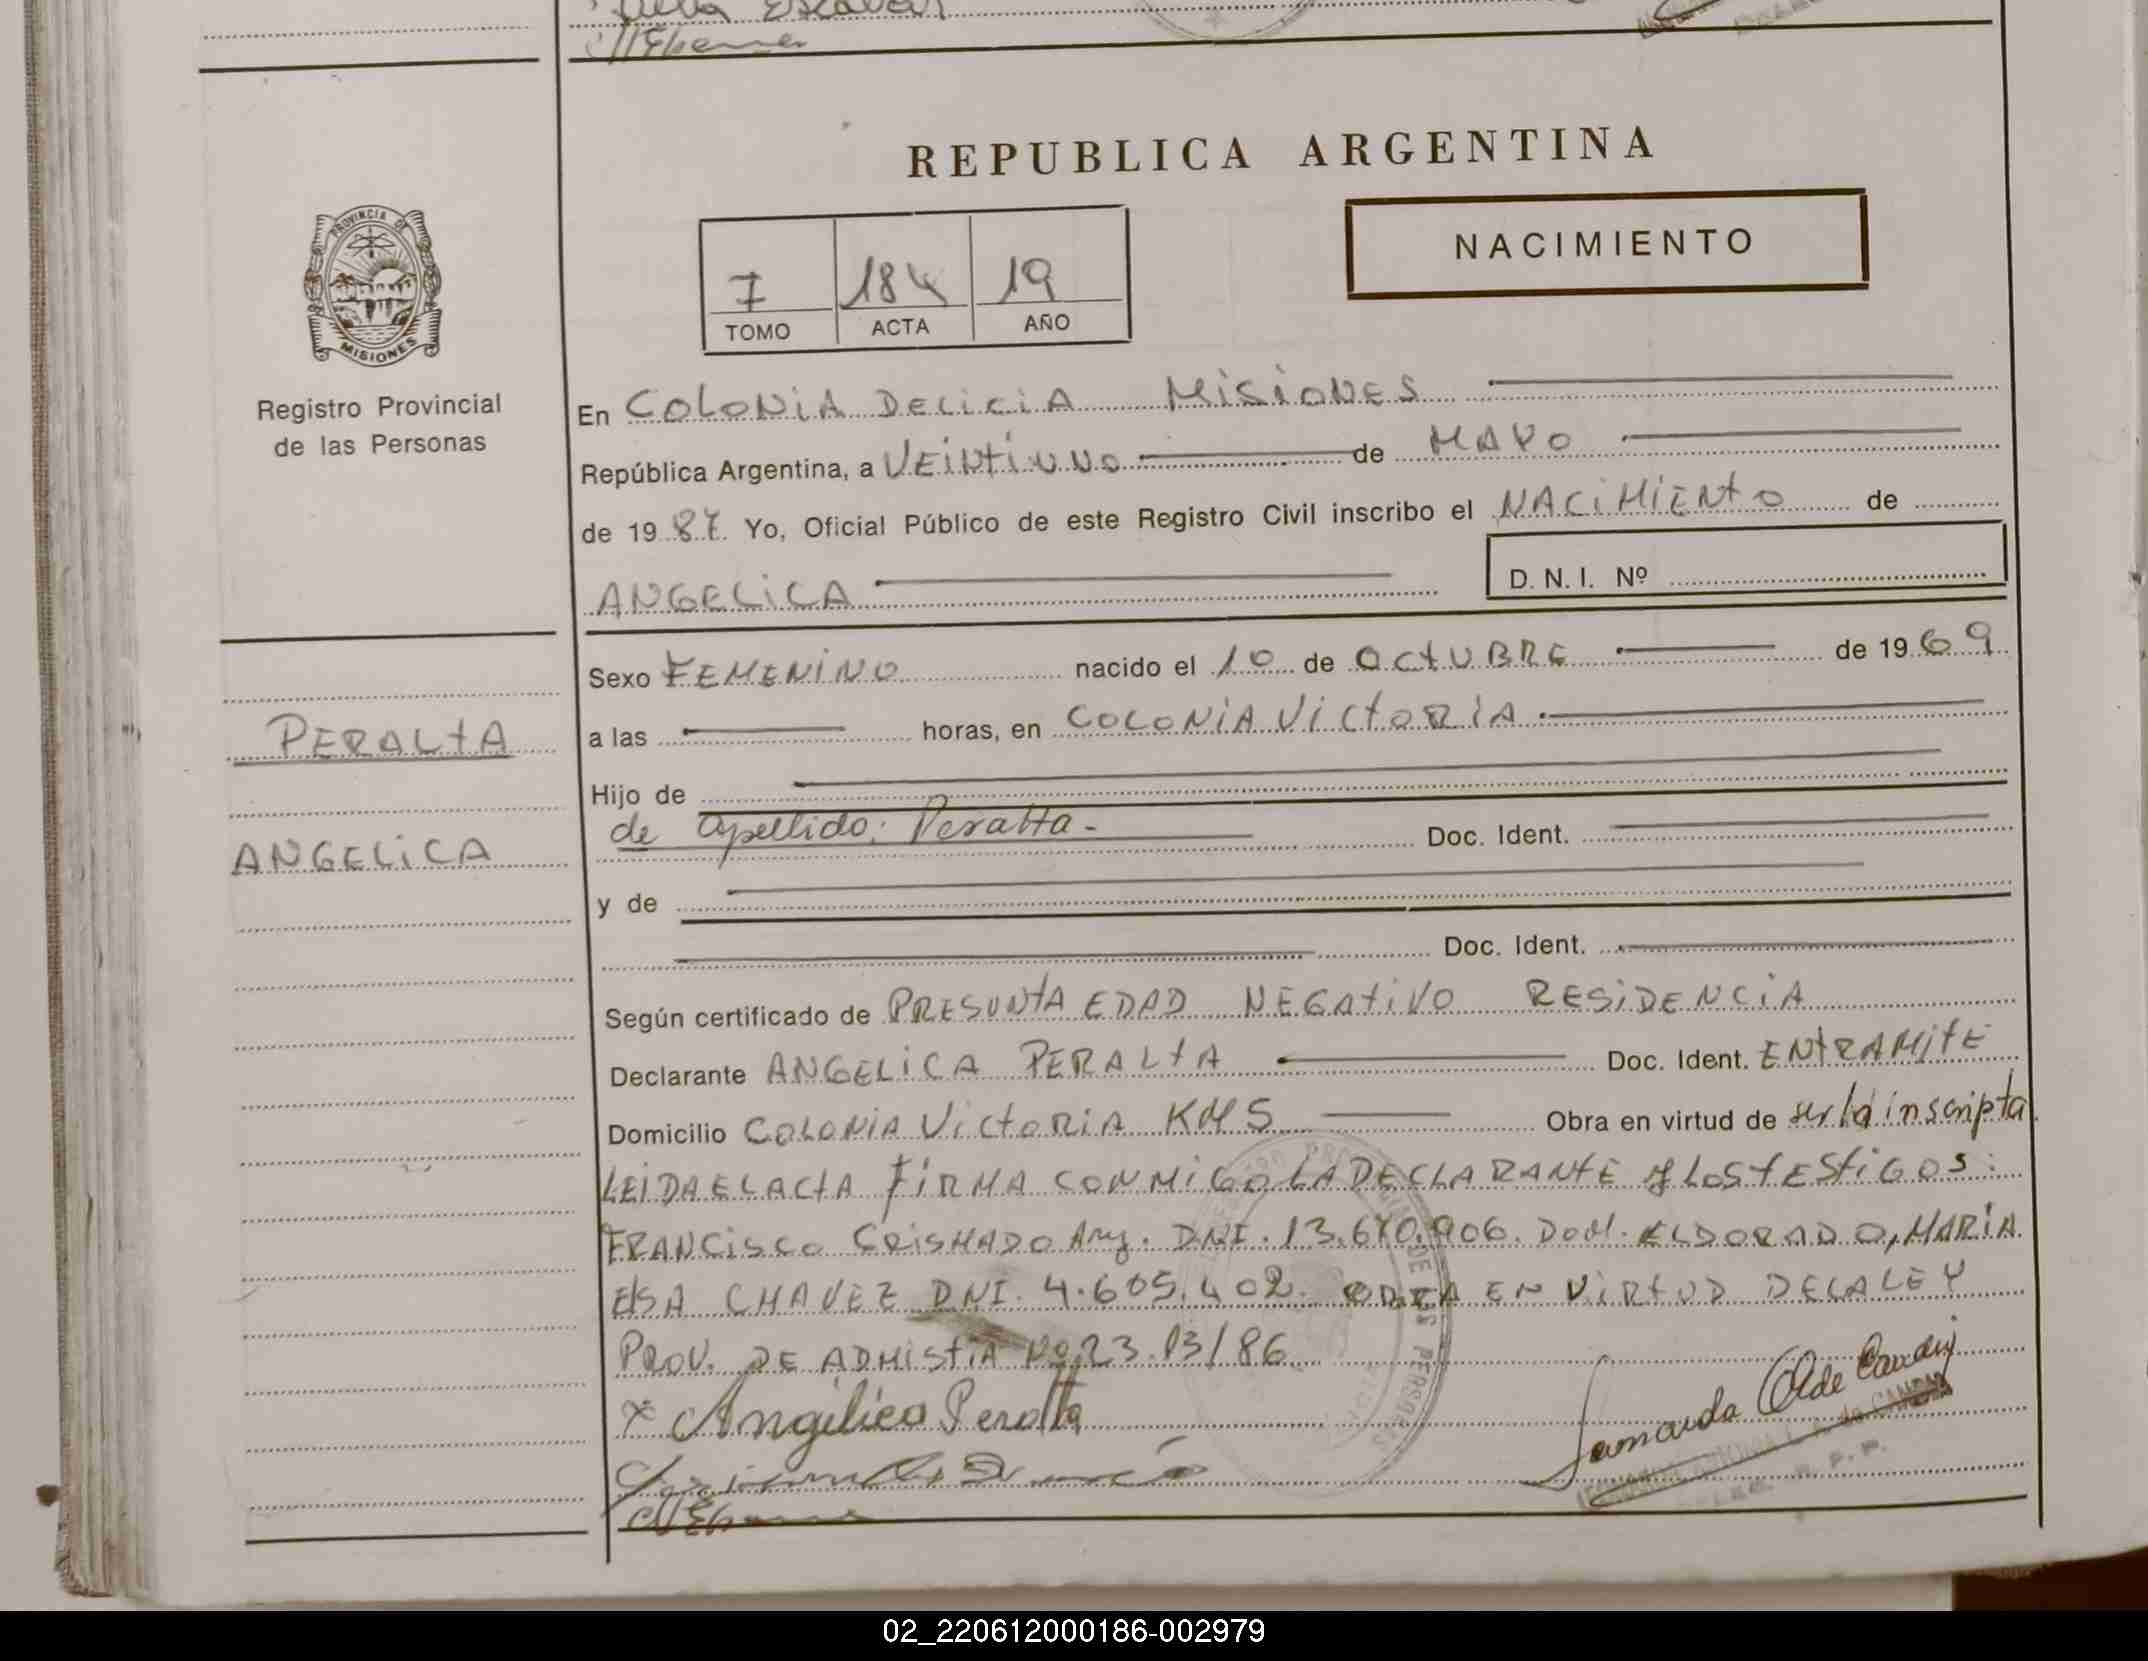 REPUBLICA ARGENTINA
NACIMIENTO
7 184 19
TOMO ACTA AÑO
PROVINCIA DE
MISIONES
Registro Provincial
de las Personas
En COLONIA DELICIA MISIONES
República Argentina, a VEINTIUNO de MAYO
de 1987 Yo, Oficial Público de este Registro Civil inscribo el NACIMIENTO de
ANGELICA D. N. I. Nº
Sexo FEMENINO nacido el 10 de OCTUBRE de 1969
PERALTA
a las horas, en COLONIA VICTORIA
Hijo de
de apellido: Peralta - Doc. Ident.
ANGELICA
y de
Doc. Ident.
Según certificado de PRESUNTA EDAD NEGATIVO RESIDENCIA
Declarante ANGELICA PERALTA Doc. Ident. EN TRAMITE
Domicilio COLONIA VICTORIA KM 5 Obra en virtud de ser la inscripta
LEIDA EL ACTA FIRMA CONMIGO LA DECLARANTE y LOS TESTIGOS:
FRANCISCO Arg. DNI. DOM. ELDORADO, MARIA
ELSA CHAVEZ DNI. 4.605.402. OBRA EN VIRTUD DE LA LEY
PROV. DE ADMISTIA Nº 23.13/86
x Angélica Peralta
02_220612000186-002979